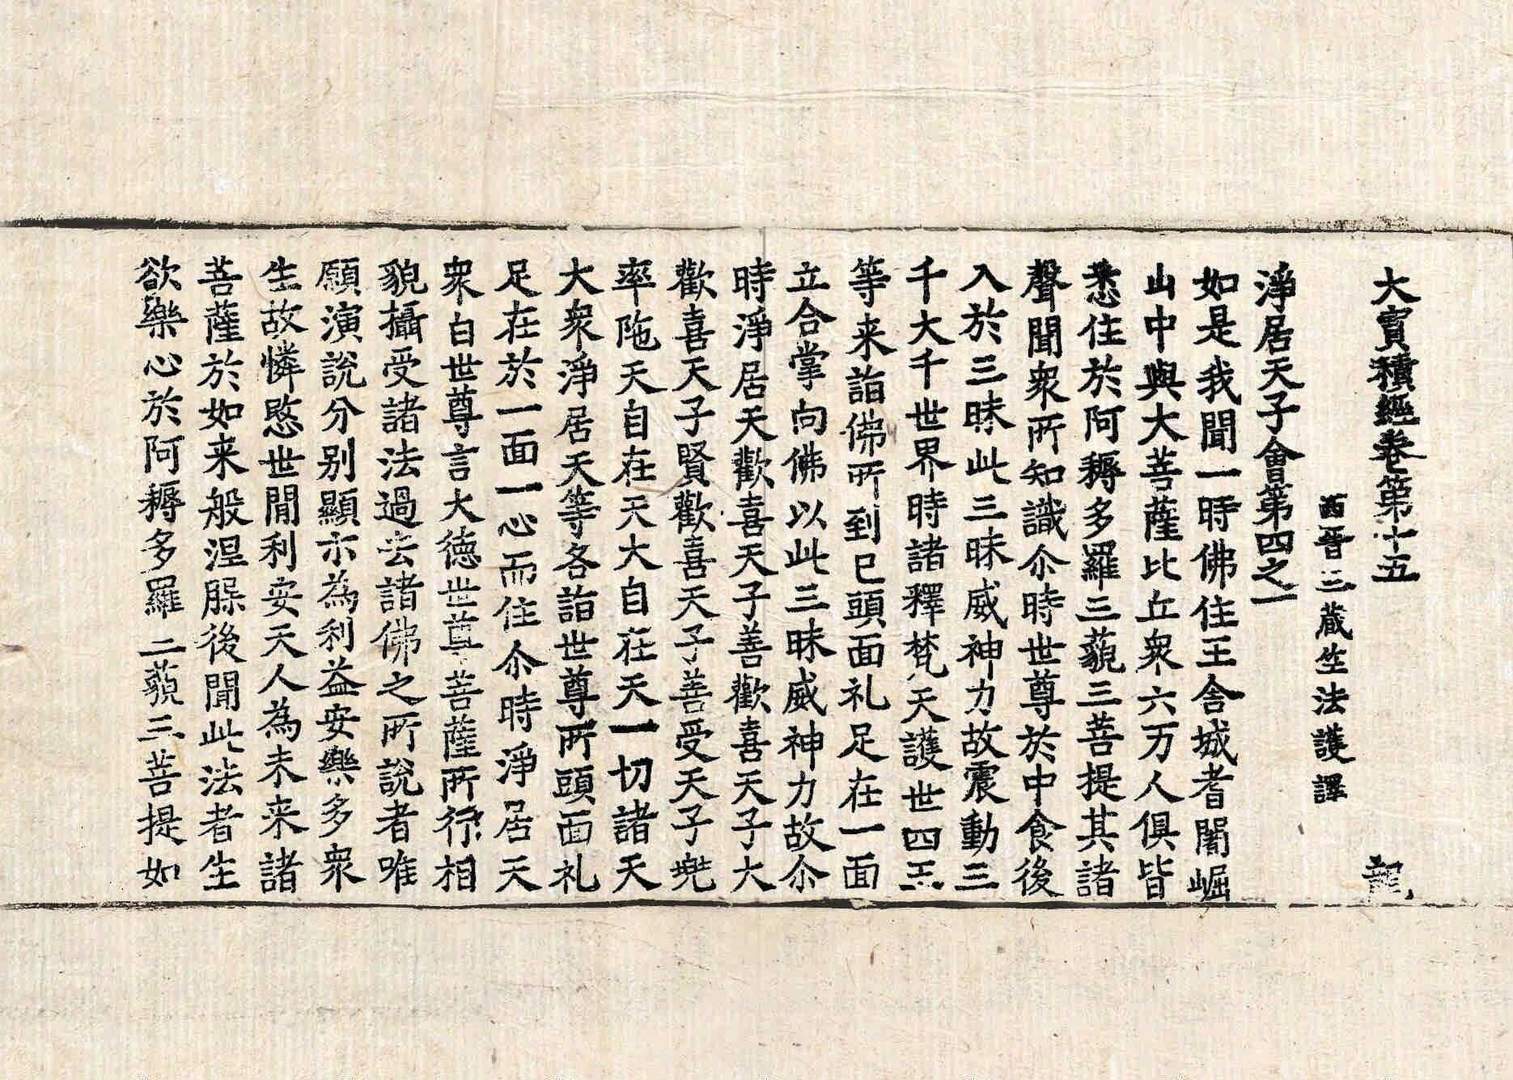 大寳積經卷第十五
龍
西晉三蔵竺法護譯
淨居天子會第四之一
如是我聞一時佛住王舍城耆闍崛
山中與大菩薩比丘衆六万人俱皆
悉住於阿耨多羅三藐三菩提其諸
聲聞衆所知識尒時世尊於中食後
入於三昧此三昧威神力故震動三
千大千世界時諸釋梵天護世四王
等来詣佛所到已頭面礼足在一面
立合掌向佛以此三昧威神力故尒
時淨居天歡喜天子善歡喜天子大
歡喜天子賢歡喜天子善受天子兠
率陁天自在天大自在天一切諸天
大衆淨居天等各詣世尊所頭面礼
足在於一面一心而住尒時淨居天
衆白世尊言大德世尊菩薩所行相
貌攝受諸法過去諸佛之所說者唯
願演說分別顯示為利益安樂多衆
生故憐愍世間利安天人為未来諸
菩薩於如来般涅槃後聞此法者生
欲樂心於阿耨多羅三藐三菩提如